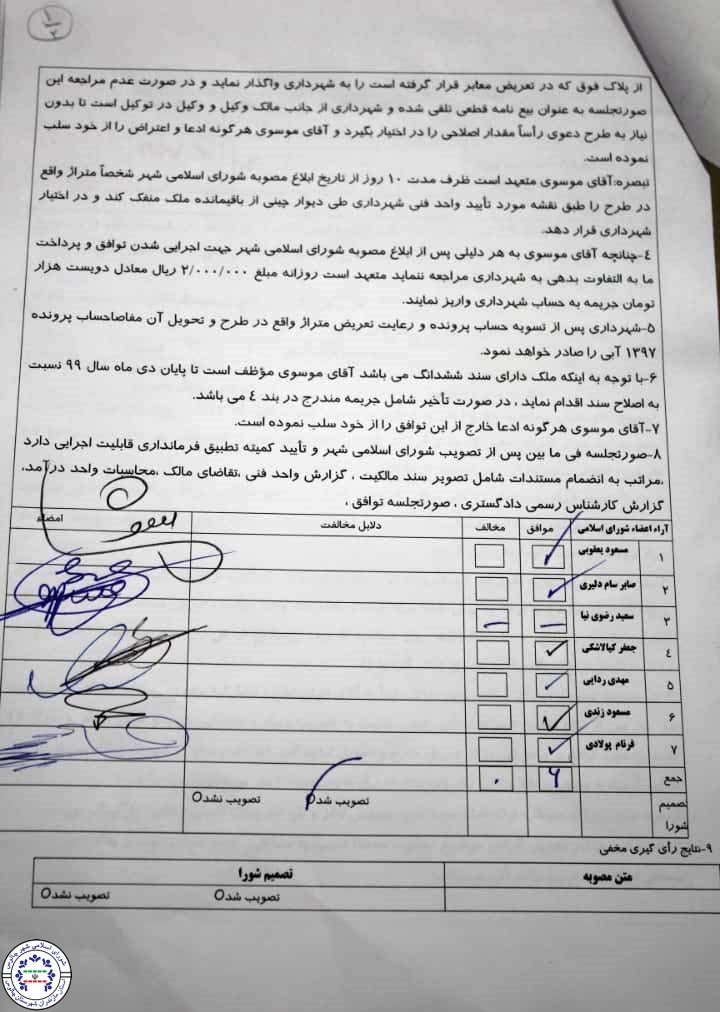 ۱/۲
از پلاک فوق که در تعریض معابر قرار گرفته است را به شهرداری واگذار نماید و در صورت عدم مراجعه این
صورتجلسه به عنوان بیع نامه قطعی تلقی شده و شهرداری از جانب مالک وکیل و وکیل در توکیل است تا بدون
نیاز به طرح دعوی رأساً مقدار اصلاحی را در اختیار بگیرد و آقای موسوی هرگونه ادعا و اعتراض را از خود سلب
نموده است.
تبصره:آقای موسوی متعهد است ظرف مدت ۱۰ روز از تاریخ ابلاغ مصوبه شورای اسلامی شهر شخصاً متراژ واقع
در طرح را طبق نقشه مورد تأیید واحد فنی شهرداری طی دیوار چینی از باقیمانده ملک منفک کند و در اختیار
شهرداری قرار دهد.
۴-چنانچه آقای موسوی به هر دلیلی پس از ابلاغ مصوبه شورای اسلامی شهر جهت اجرایی شدن توافق و پرداخت
ما به التفاوت بدهی به شهرداری مراجعه ننماید متعهد است روزانه مبلغ ۲/۰۰۰/۰۰۰ ریال معادل دویست هزار
تومان جریمه به حساب شهرداری واریز نمایند.
۵-شهرداری پس از تسویه حساب پرونده و رعایت تعریض متراژ واقع در طرح و تحویل آن مفاصاحساب پرونده
۱۳۹۷ آبی را صادر خواهد نمود.
۶-با توجه به اینکه ملک دارای سند ششدانگ می باشد آقای موسوی مؤظف است تا پایان دی ماه سال ۹۹ نسبت
به اصلاح سند اقدام نماید ، در صورت تأخیر شامل جریمه مندرج در بند ٤ می باشد.
۷-آقای موسوی هرگونه ادعا خارج از این توافق را از خود سلب نموده است.
۸-صورتجلسه فی ما بین پس از تصویب شورای اسلامی شهر و تأیید کمیته تطبیق فرمانداری قابلیت اجرایی دارد
،مراتب به انضمام مستندات شامل تصویر سند مالکیت ، گزارش واحد فنی ،تقاضای مالک ،محاسبات واحد درآمد،
گزارش کارشناس رسمی دادگستری ، صورتجلسه توافق ،
آراء اعضاء شورای اسلامی موافق مخالف دلایل مخالفت امضاء
۱ مسعود یعقوبی
۲ صابر سام دلیری
۳ سعید رضوی نیا
٤ جعفر کیالاشکی
۵ مهدی ردایی
۶ مسعود زندی
۷ فرنام پولادی
جمع ۶ ۰
تصمیم شورا تصویب شد تصویب نشد
۹-نتایج رأی گیری مخفی
متن مصوبه تصمیم شورا
تصویب شد تصویب نشد
شورای اسلامی شهر چالوس
استان مازندران شهرستان چالوس